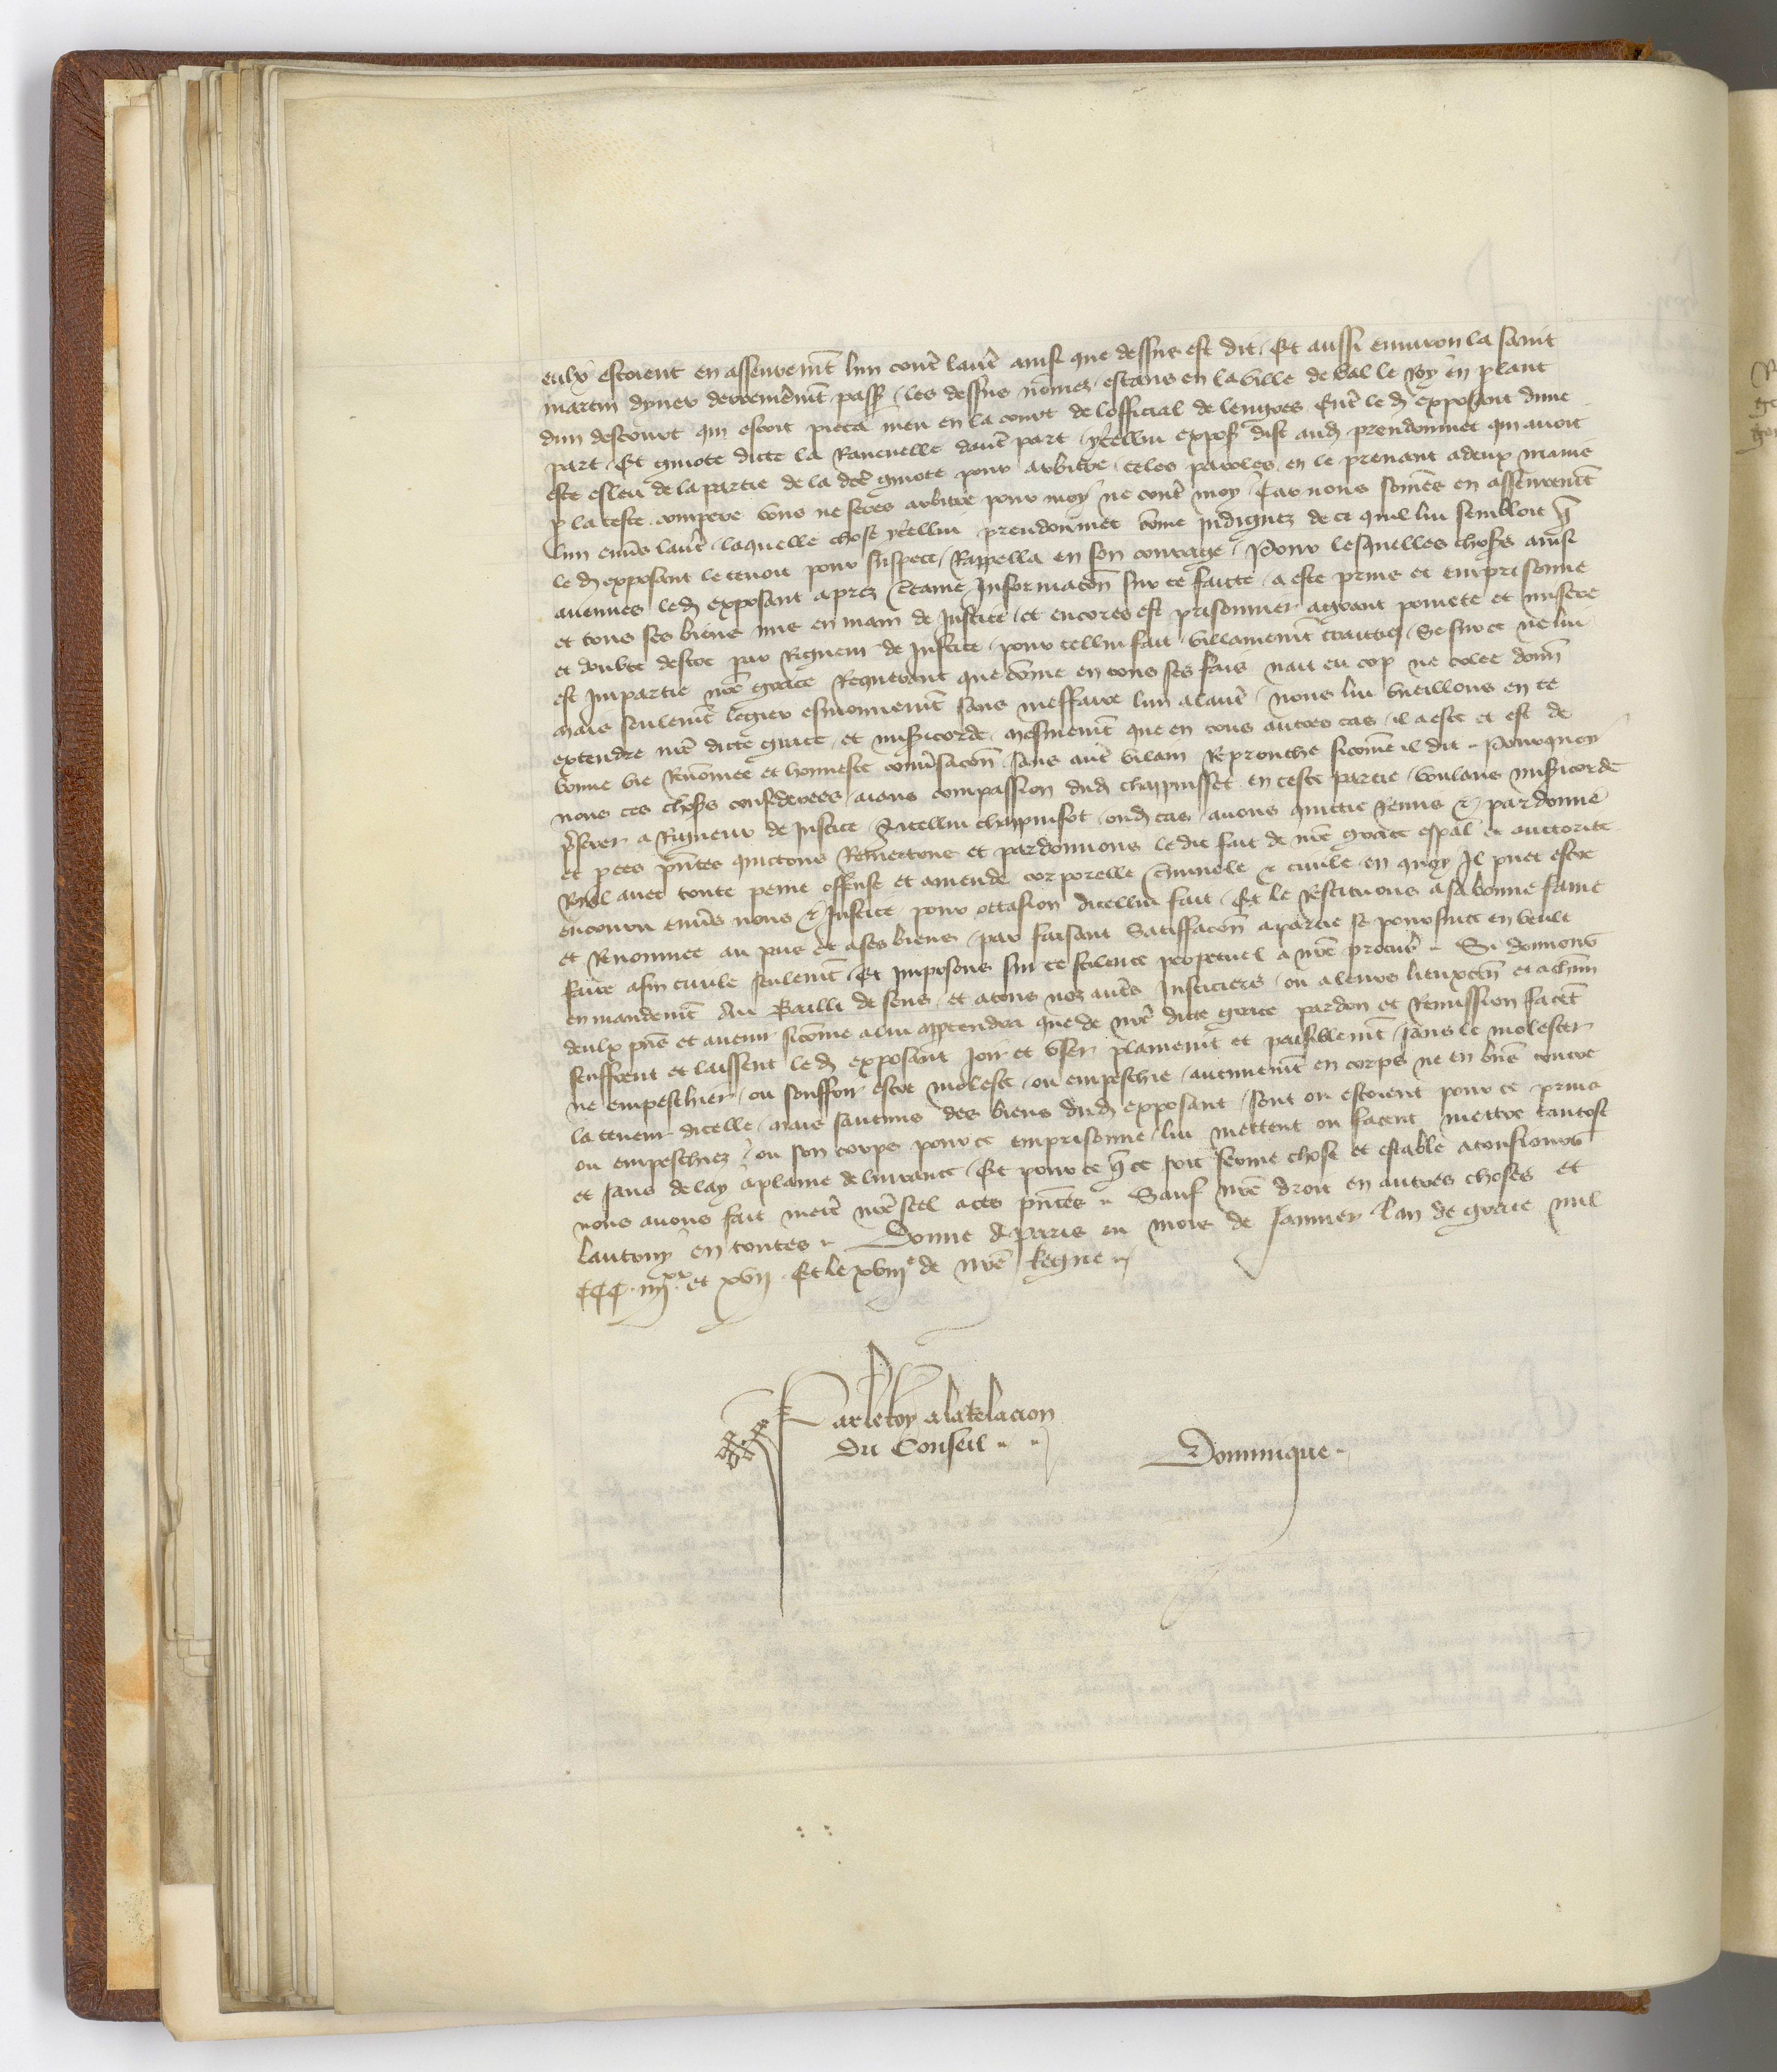 eulx estoient en asseuremt lun contre lautre ainsi que dessus est dit Et aussi environ la saint
martin dyver derrenieremt passe les dessus nommez estans en la ville de val le Roy en plant
dun descourt qui estoit pieca meu en la court de lofficial de lengres Entre led exposant dune
part Et guiote dicte la Rancuelle dautre part ycellui expos dist aud preudommet qui avoit
este esleu de la partie de la dicte guiote pour arbitre teles paroles en le prenant a deux mains
p la teste compere vous ne seres arbitre pour moy ne contre moy Car nous sommes en asseuremt
lun envers lautre laquelle chose ycellui preudommet come indignez de ce quil lui sembloit q
le d exposant le tenoit pour suspect Rappella en son courage Pour lesquelles choses ainsi
avenues led exposant aprez certaine Informacon sur ce faicte a este prins et emprisonne
et tous ses biens mis en main de Justice et encores est prisonnier a grant povrete et misere
et doubte destre par Rigueur de Justice pour cellui fait villainemt traittiez Se sur ce ne lui
est Impartie nre grace Requerant que come en tous ses fais nait eu cop ne colee donn
mais seulemt legier esmouvemt sans meffaire lun a lautre nous lui vueillons en ce
extendre nre dicte grace et misericorde mesmemt que en tous autres cas il a este et est de
bonne vie Renommee et honneste conversacon sans autre vilain Reprouche sicome il dit Pourquoy
nous ces choses considerees aians compassion dud chappuisset en ceste partie voulans misericorde
pferer a Rigueur de Justice A icellui chappuisot oud cas avons quictie Remis et pardonne
et p ces pntes quictons Remettons et pardonnons ledit fait de nre grace espal et auctorite
Royal avec toute peine offense et amende corporelle criminele et civile en quoy Il puet estre
encouru envers nous et Justice pour occasion dicellui fait Et le Restituons a sa bonne fame
et Renommee au pais et a ses biens par faisant Satiffacon a partie se poursuite en veult
faire a fin civile seulemt Et Imposons sur ce scilence perpetuel a nre procureur Si donnons
en mandemt Au Bailli de sens et a tous noz autres Justiciers ou a leurs lieuxten et a chun
deulx pns et avenir sicome a lui appendra que de nre dicte grace pardon et Remission facent
seuffrent et laissent led exposant Joir et user plainemt et paisiblemt sans le molester
ne empeschier ou souffrir estre moleste ou empeschie aucunemt en corps ne en biens contre
la teneur dicelle Mais saucuns des biens dud exposant sont ou estoient pour ce prins
ou empeschiez ou son corps pour ce emprisonne lui mettent ou facent mettre tantost
et sans delay a plaine delivrance Et pour ce q ce soit ferme chose et estable a tousiours
nous avons fait mettre nre seel a ces pntes Sauf nre droit en autres choses et
lautruy en toutes Donne A paris ou mois de Janvier lan de grace mil
CCC iiijxx et xvij Et le xviije de nre Regne
Par le Roy a la Relacion
du Conseil
Dominique